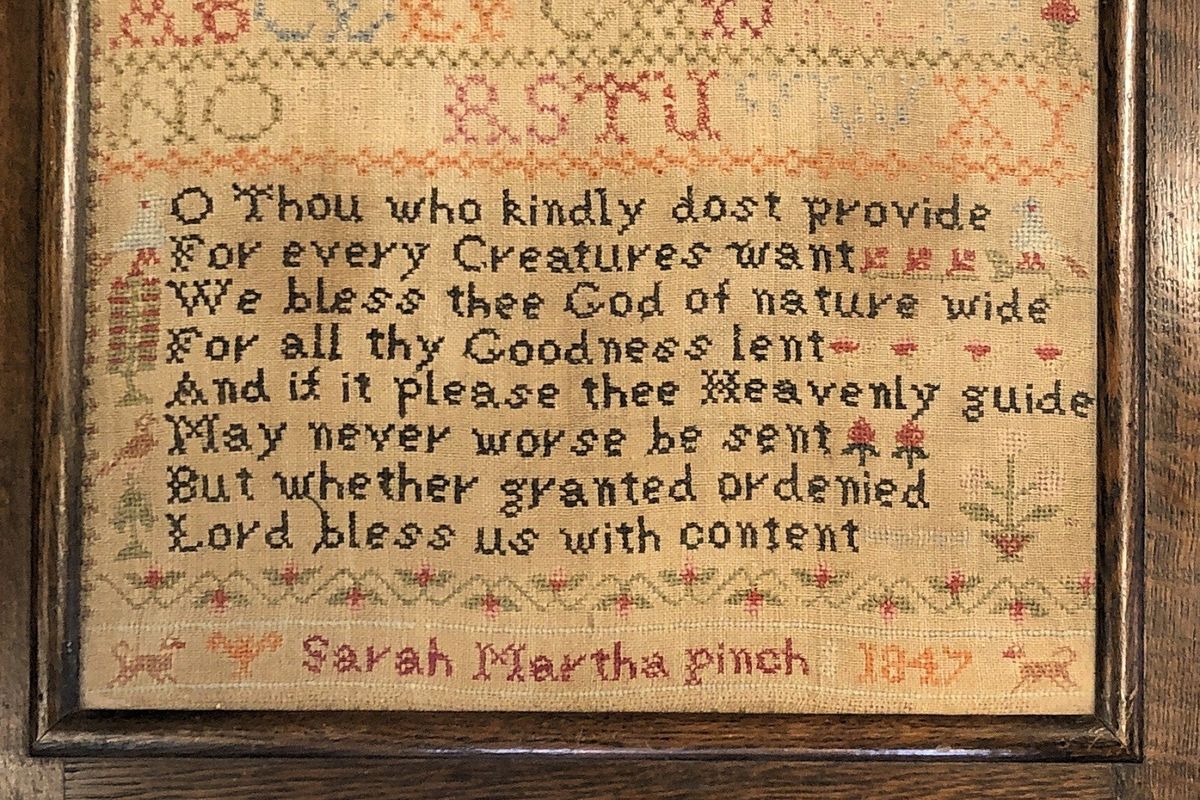 A B C D E F G H I
N O R S T U V W X Y
O Thou who kindly dost provide
For every Creatures want
We bless thee God of nature wide
For all thy Goodness lent
And if it please thee Heavenly guide
May never worse be sent
But whether granted ordenied
Lord bless us with content
Sarah Martha pinch 1847